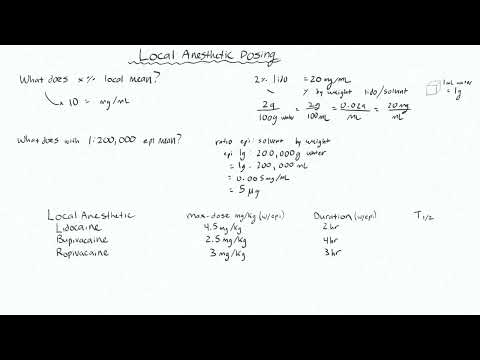 Local Anesthetic Dosing
What does x% local mean?
x 10 = mg/mL
2% lido = 20 mg/mL
% by weight lido/solvent
2g / 100g water = 2g / 100 mL = 0.02g / mL = 20 mg / mL
1 mL water = 1g
What does with 1:200,000 epi mean?
ratio epi: solvent by weight
epi 1g: 200,000g water
= 1g. 200,000 mL
= 0.005 mg/mL
= 5 µg
Local Anesthetic max-dose mg/kg (w/epi) Duration (w/epi) T1/2
Lidocaine 4.5 mg/kg 2 hr
Bupivacaine 2.5 mg/kg 4 hr
Ropivacaine 3 mg/kg 3 hr